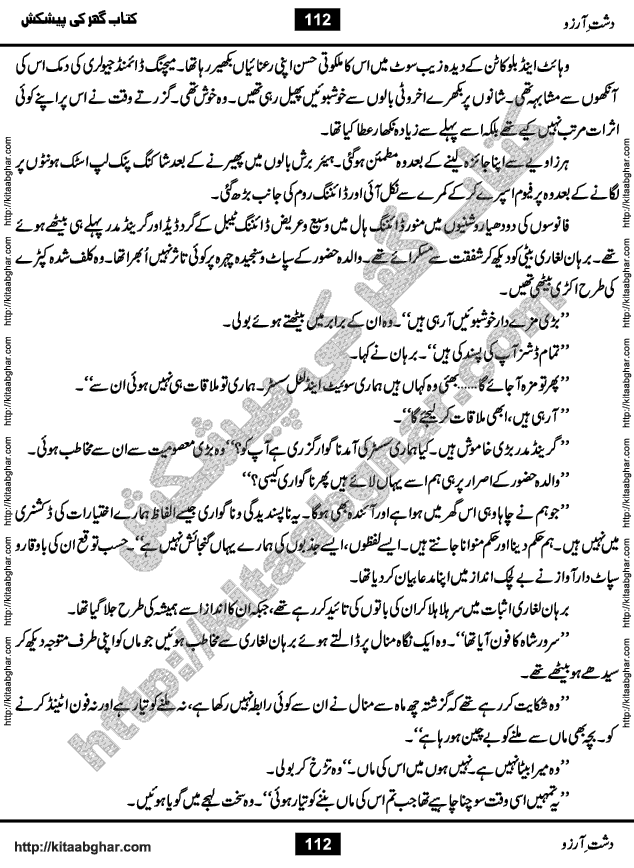 کتاب گھر کی پیشکش 112 دشتِ آرزو
وہائٹ اینڈ بلو کاٹن کے دیدہ زیب سوٹ میں اس کا ملکوتی حسن اپنی رعنائیاں بکھیر رہا تھا۔ میچنگ ڈائمنڈ جیولری کی دمک اس کی
آنکھوں سے مشابہہ تھی۔ شانوں پر بکھرے اخروٹی بالوں سے خوشبوئیں پھیل رہی تھیں۔ وہ خوش تھی۔ گزرتے وقت نے اس پر اپنے کوئی
اثرات مرتب نہیں کیے تھے بلکہ اسے پہلے سے زیادہ نکھار عطا کیا تھا۔
ہر زاویے سے اپنا جائزہ لینے کے بعد وہ مطمئن ہو گئی۔ ہیئر برش بالوں میں پھیرنے کے بعد شاکنگ پنک لپ اسٹک ہونٹوں پر
لگانے کے بعد وہ پرفیوم اسپرے کر کے کمرے سے نکل آئی اور ڈائننگ روم کی جانب بڑھ گئی۔
فانوسوں کی دودھیا روشنیوں میں منور ڈائننگ ہال میں وسیع و عریض ڈائننگ ٹیبل کے گرد ڈیڈ اور گرینڈ مدر پہلے ہی بیٹھے ہوئے
تھے۔ برہان لغاری بیٹی کو دیکھ کر شفقت سے مسکرائے تھے۔ والدہ حضور کے سپاٹ و سنجیدہ چہرہ پر کوئی تاثر نہیں اُبھرا تھا۔ وہ کلف شدہ کپڑے
کی طرح اکڑی بیٹھی تھیں۔
’’بڑی مزے دار خوشبوئیں آ رہی ہیں‘‘۔ وہ ان کے برابر میں بیٹھتے ہوئے بولی۔
’’تمام ڈشز آپ کی پسند کی ہیں‘‘۔ برہان نے کہا۔
’’پھر تو مزہ آ جائے گا...... بھئی وہ کہاں ہیں ہماری سوئیٹ اینڈ لٹل سسٹر۔ ہماری تو ملاقات ہی نہیں ہوئی ان سے‘‘۔
’’آ رہی ہیں، ابھی ملاقات کر لیجئے گا‘‘۔
’’گرینڈ مدر بڑی خاموش ہیں۔ کیا ہماری سسٹر کی آمد ناگوار گزری ہے آپ کو؟‘‘ وہ بڑی معصومیت سے ان سے مخاطب ہوئی۔
’’والدہ حضور کے اصرار پر ہی ہم اسے یہاں لائے ہیں پھر ناگواری کیسی؟‘‘
’’جو ہم نے چاہا وہی اس گھر میں ہوا ہے اور آئندہ بھی ہوگا۔ یہ ناپسندیدگی و ناگواری جیسے الفاظ ہمارے اختیارات کی ڈکشنری
میں نہیں ہیں۔ ہم حکم دینا اور حکم منوانا جانتے ہیں۔ ایسے لفظوں، ایسے جذبوں کی ہمارے یہاں گنجائش نہیں ہے‘‘۔ حسب توقع ان کی باوقار و
سپاٹ دار آواز نے بے لچک انداز میں اپنا مدعا بیان کر دیا تھا۔
برہان لغاری اثبات میں سر ہلا ہلا کر ان کی باتوں کی تائید کر رہے تھے، جبکہ ان کا انداز اسے ہمیشہ کی طرح جلا گیا تھا۔
’’سرور شاہ کا فون آیا تھا‘‘۔ وہ ایک نگاہ منال پر ڈالتے ہوئے برہان لغاری سے مخاطب ہوئیں جو ماں کو اپنی طرف متوجہ دیکھ کر
سیدھے ہو بیٹھے تھے۔
’’وہ شکایت کر رہے تھے کہ گزشتہ چھ ماہ سے منال نے ان سے کوئی رابطہ نہیں رکھا ہے، نہ ملنے کو تیار ہے اور نہ فون اٹینڈ کرنے
کو۔ بچہ بھی ماں سے ملنے کو بے چین ہو رہا ہے‘‘۔
’’وہ میرا بیٹا نہیں ہے۔ نہیں ہوں میں اس کی ماں‘‘۔ وہ تڑخ کر بولی۔
’’یہ تمہیں اسی وقت سوچنا چاہیے تھا جب تم اس کی ماں بننے کو تیار ہوئی‘‘۔ وہ سخت لہجے میں گویا ہوئیں۔
http://kitaabghar.com 112 دشتِ آرزو
http://kitaabghar.com http://kitaabghar.com http://kitaabghar.com http://kitaabghar.com http://kitaabghar.com http://kitaabghar.com
http://kitaabghar.com http://kitaabghar.com http://kitaabghar.com http://kitaabghar.com http://kitaabghar.com http://kitaabghar.com
کتاب گھر کی پیشکش
http://kitaabghar.com